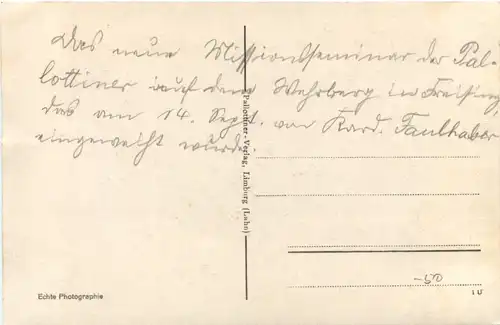 Das neue Missionsseminar der Pal-
lottiner auf dem Wehrberg in Freising,
das am 14. Sept. von Kard. Faulhaber
eingeweiht wurde.
Pallottiner-Verlag, Limburg (Lahn)
-50
Echte Photographie
1 U